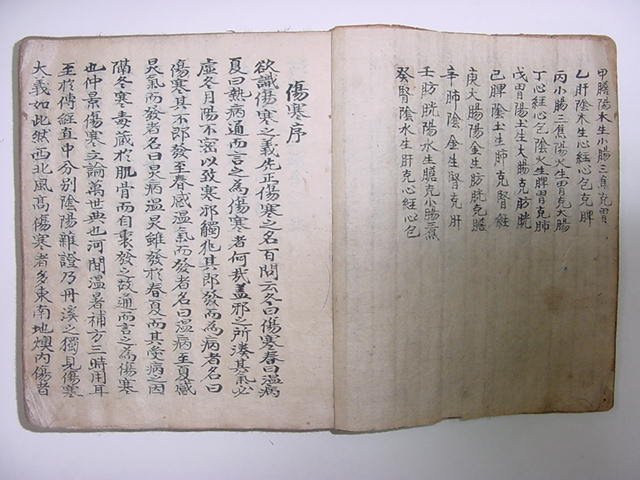 甲膽陽木生小腸三焦克胃
乙肝陰木生心經心包克脾
丙小腸三焦陽火生胃克大腸
丁心經心包陰火生脾胃克肺
戊胃陽土生大腸克肪胱
己脾陰土生肺克腎經
庚大腸陽金生肪胱克膽
辛肺陰金生腎克肝
壬肪胱陽水生膽克小腸三焦
癸腎陰水生肝克心經心包
傷寒序
欲識傷寒之義先正傷寒之名百問云冬曰傷寒春曰溫病
夏曰熱病通而言之為傷寒者何哉蓋邪之所湊其氣必
虛冬月陽不密以致寒邪觸兆其即發而為病者名曰
傷寒其不即發至春感溫氣而發者名曰溫病至夏感
炅氣而發者名曰炅病溫炅雖發於春夏而其受病之因
隔冬寒毒藏於肌骨而自裏發之故通而言之為傷寒
也仲景傷寒立論萬世典也河間溫暑補方三時用耳
至於傳經直中分別陰陽雜證乃丹溪之獨見傷寒
大義如此然西北風高傷寒者多東南地燠內傷者